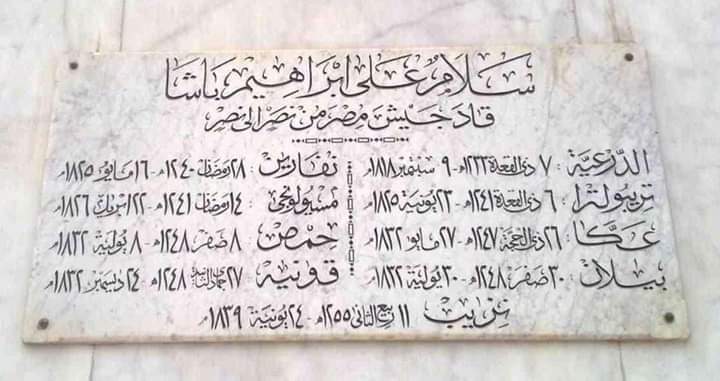 سلام على ابراهيم باشا
قاد جيش مصر من نصر الى نصر
الدرعية : ٧ ذى القعدة ١٢٣٣هـ - ٩ سبتمبر ١٨١٨م
تريبولتزا : ٦ ذى القعدة ١٢٤١هـ - ٢٣ يونية ١٨٢٥م
عكا : ٢٦ ذى الحجة ١٢٤٧هـ - ٢٧ مايو ١٨٣٢م
بيلان : ٣٠ صفر ١٢٤٨هـ - ٣٠ يولية ١٨٣٢م
نفارين : ٢٨ رمضان ١٢٤٠هـ - ١٦ مايو ١٨٢٥م
مسولونجى : ١٤ رمضان ١٢٤١هـ - ٢٢ ابريل ١٨٢٦م
حمص : ٨ صفر ١٢٤٨هـ - ٨ يولية ١٨٣٢م
قونية : ٢٧ جمادى الثانية ١٢٤٨هـ - ٢٤ ديسمبر ١٨٣٢م
نزيب : ١١ ربيع الثانى ١٢٥٥هـ - ٢٤ يونية ١٨٣٩م